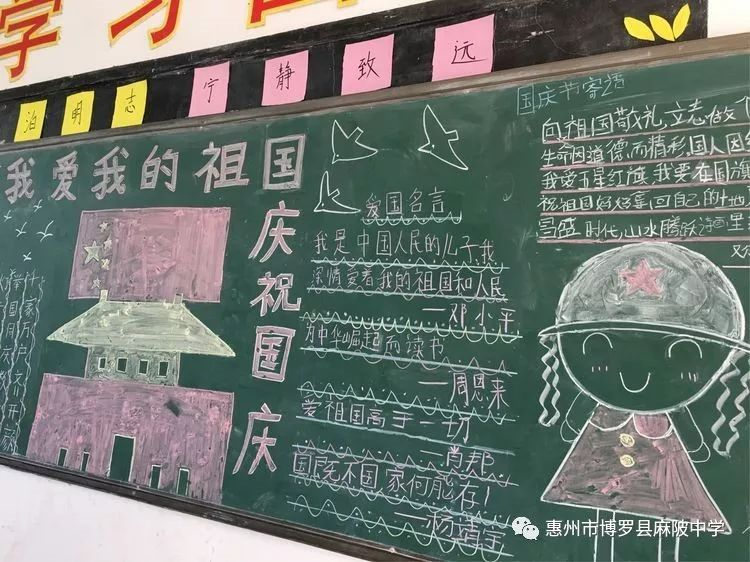 学习园
泊明志 宁静致远
我爱我的祖国
庆祝国庆
爱国名言
我是中国人民的儿子,我
深情爱着我的祖国和人民
——邓小平
为中华崛起而读书
——周恩来
爱祖国高于一切
——肖邦
国既不国,家何能存!
——杨靖宇
国庆节寄语
向祖国敬礼,立志做
生命因道德,而精彩国人因
我爱五星红旗,我要在国旗
祝祖国好好
回自己的地
时代,山水腾跃
惠州市博罗县麻陂中学